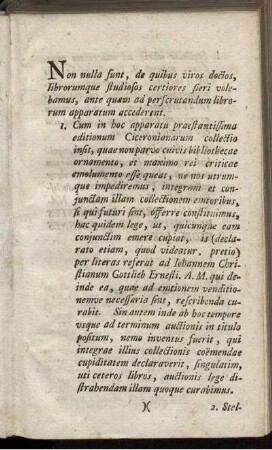 Non nulla sunt, de quibus viros doctos,
librorumque studiosos certiores fieri vole-
bamus, ante quam ad perscrutandum libro-
rum apparatum accederent.
1. Cum in hoc apparatu praestantissima
editionum Ciceronianarum collectio
insit, quae non parvo cuivis bibliothecae
ornamento, et maximo rei criticae
emolumento esse queat, ne nos utrum-
que impediremus, integram et con-
junctam illam collectionem emtoribus,
si qui futuri sint, offerre constituimus,
hac quidem lege, ut, quicunque eam
conjunctim emere cupiat, is (decla-
rato etiam, quod videatur, pretio)
per literas referat ad Iohannem Chri-
stianum Gottlieb Ernesti, A. M. qui de-
inde ea, quae ad emtionem venditio-
nemve necessaria sint, rescribenda cu-
rabit. Sin autem inde ab hoc tempore
usque ad terminum auctionis in titulo
positum, nemo inventus fuerit, qui
integrae illius collectionis coëmendae
cupiditatem declaraverit, singulatim,
uti ceteros libros, auctionis lege di-
strahendam illam quoque curabimus.
)( 2. Stel-